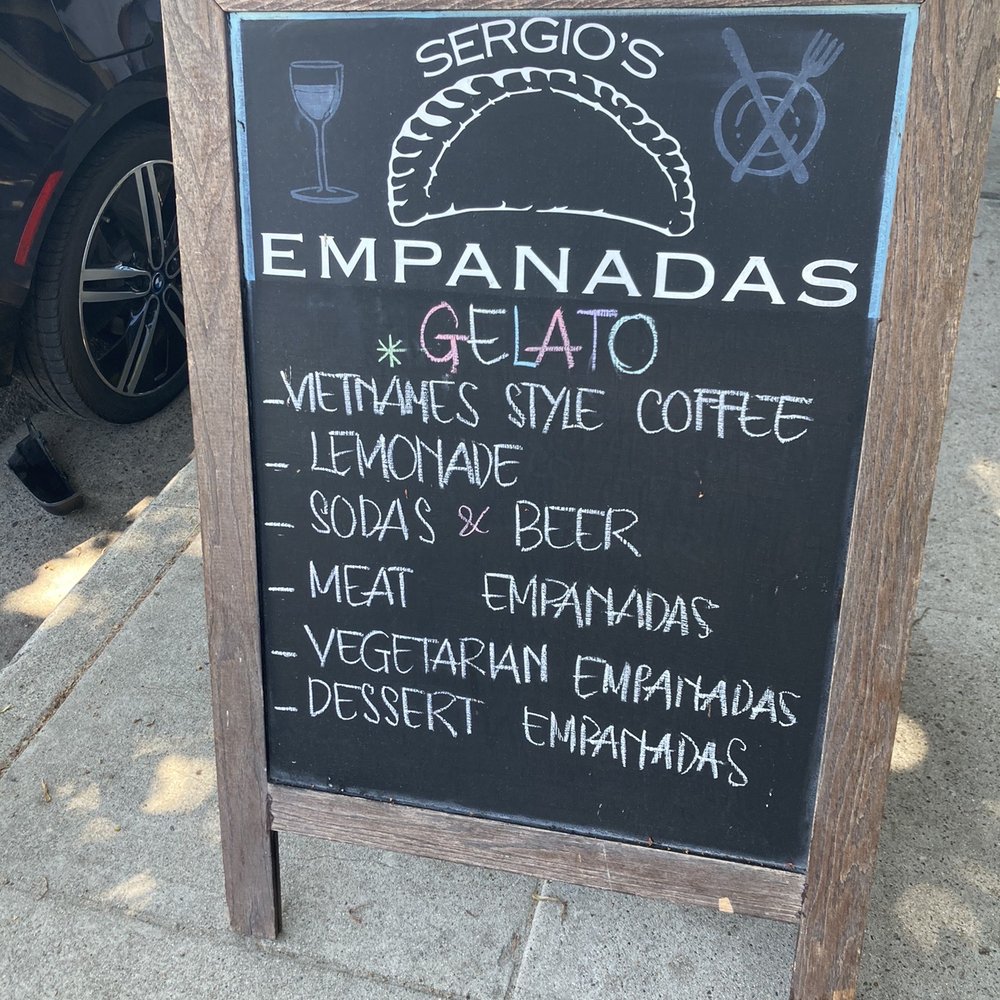 SERGIO'S
EMPANADAS
* GELATO
-VIETNAMES STYLE COFFEE
- LEMONADE
- SODAS & BEER
- MEAT EMPANADAS
- VEGETARIAN EMPANADAS
- DESSERT EMPANADAS